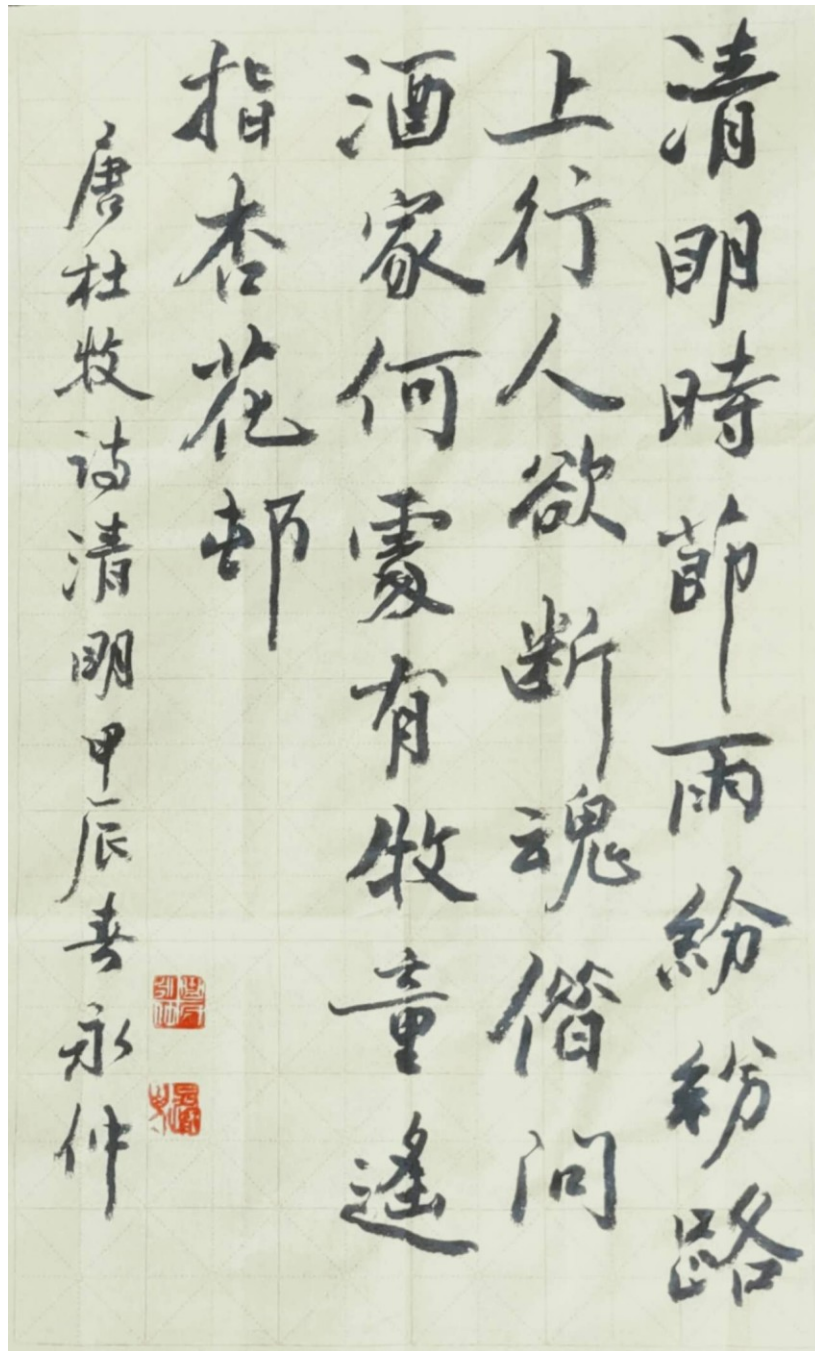 清明時節雨紛紛路
上行人欲断魂借问
酒家何處有牧童遙
指杏花邨
唐杜牧诗清明甲辰春永仲